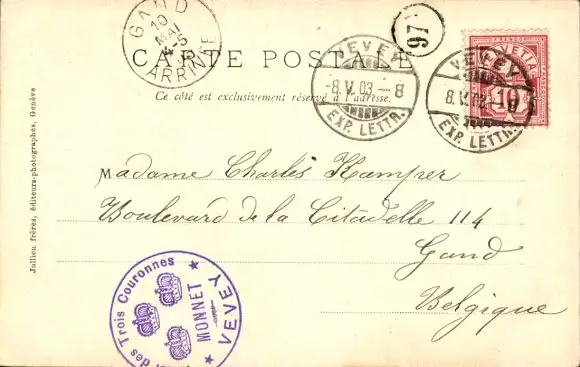 GAND
10
MAI
4-5
ARRIVÉE
97
CARTE POSTALE
Ce côté est exclusivement réservé à l'adresse.
VEVEY
-8.V.03.-8
EXP. LETTR.
VEVEY
8.V.03.-8
EXP. LETTR.
HELVETIA
10
Madame Charles Kamper
Boulevard de la Citadelle 114
Gand
Belgique
Jullien frères, éditeurs-photographes, Genève
des Trois Couronnes
MONNET
★ VEVEY ★